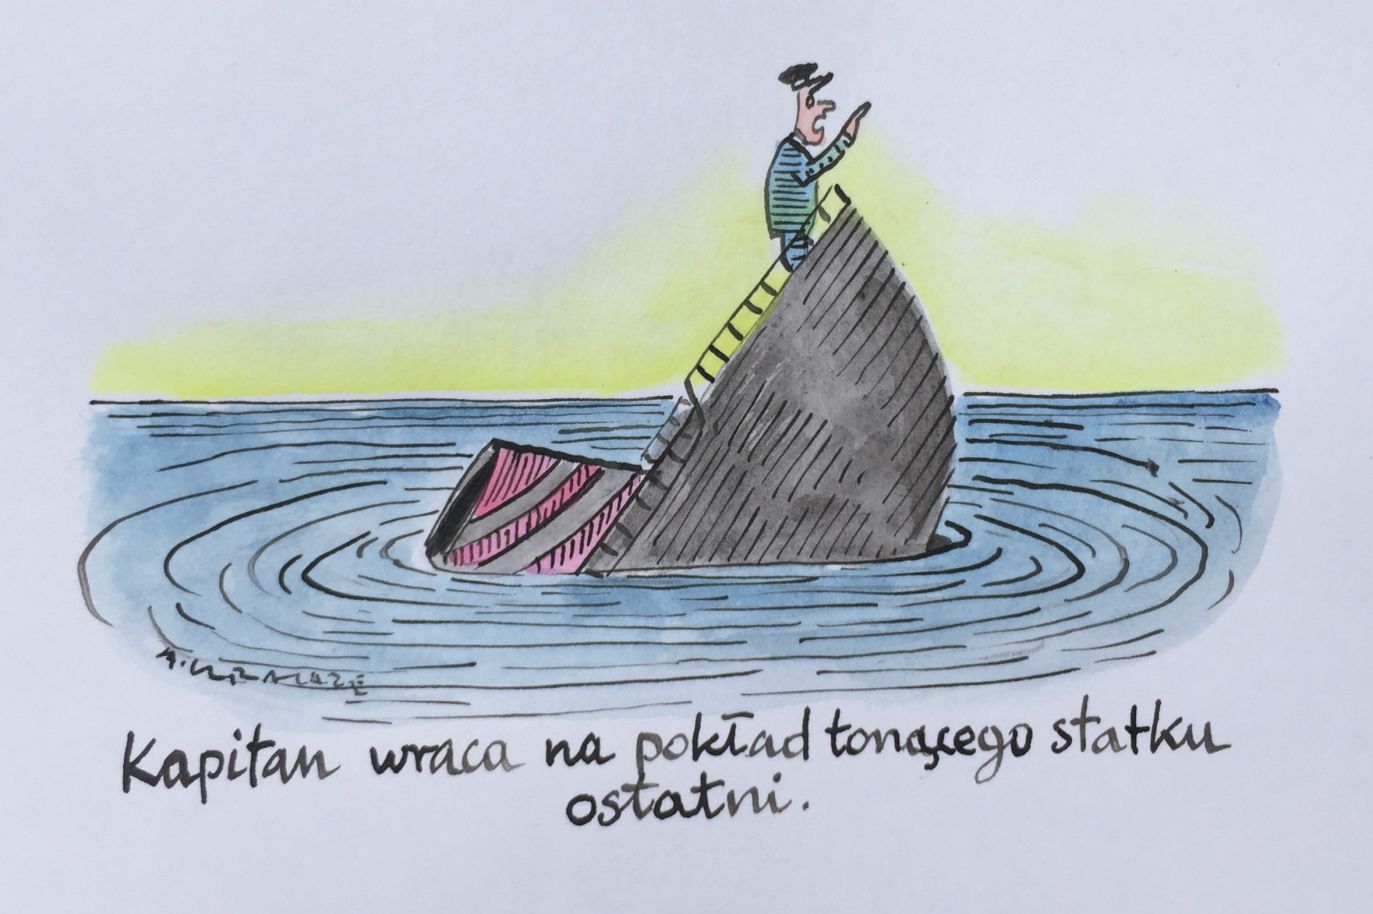 A. KRAUZE
Kapitan wraca na pokład tonącego statku
ostatni.